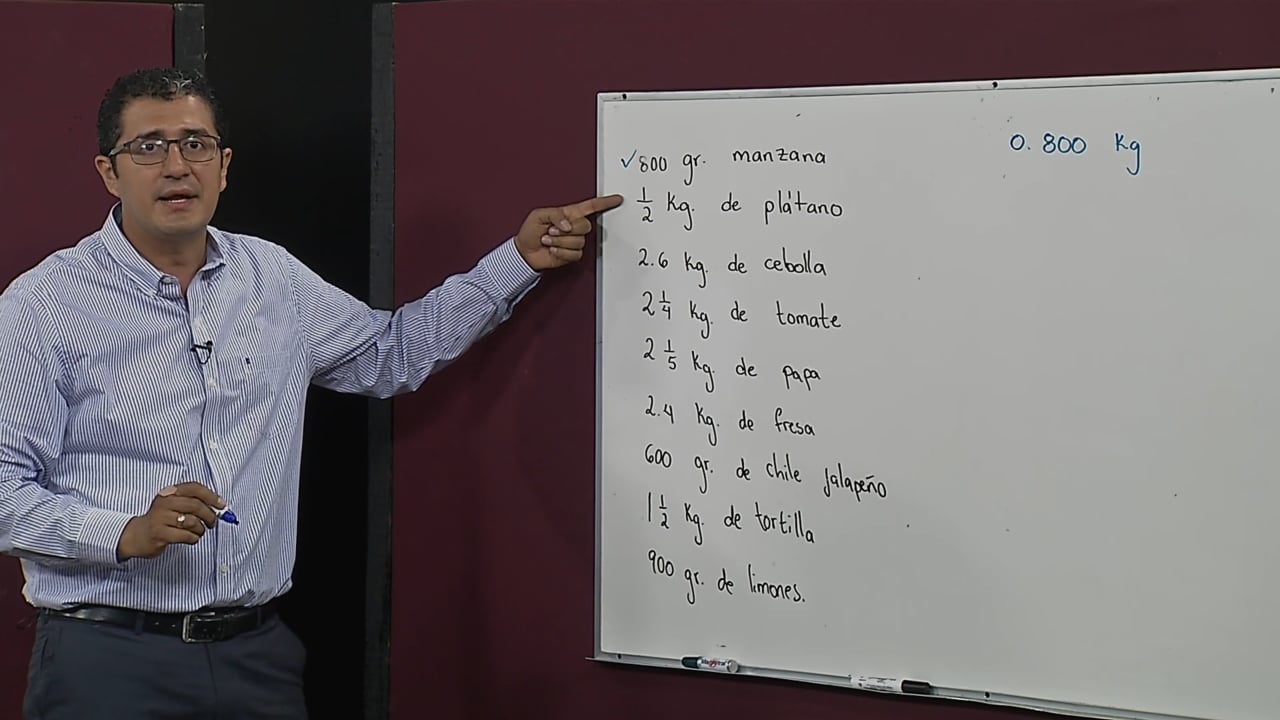 ✓800 gr. manzana
0.800 Kg
1/2 Kg. de plátano
2.6 Kg. de cebolla
2 1/4 Kg. de tomate
2 1/5 Kg. de papa
2.4 Kg. de fresa
600 gr. de chile jalapeño
1 1/2 Kg. de tortilla
900 gr. de limones.